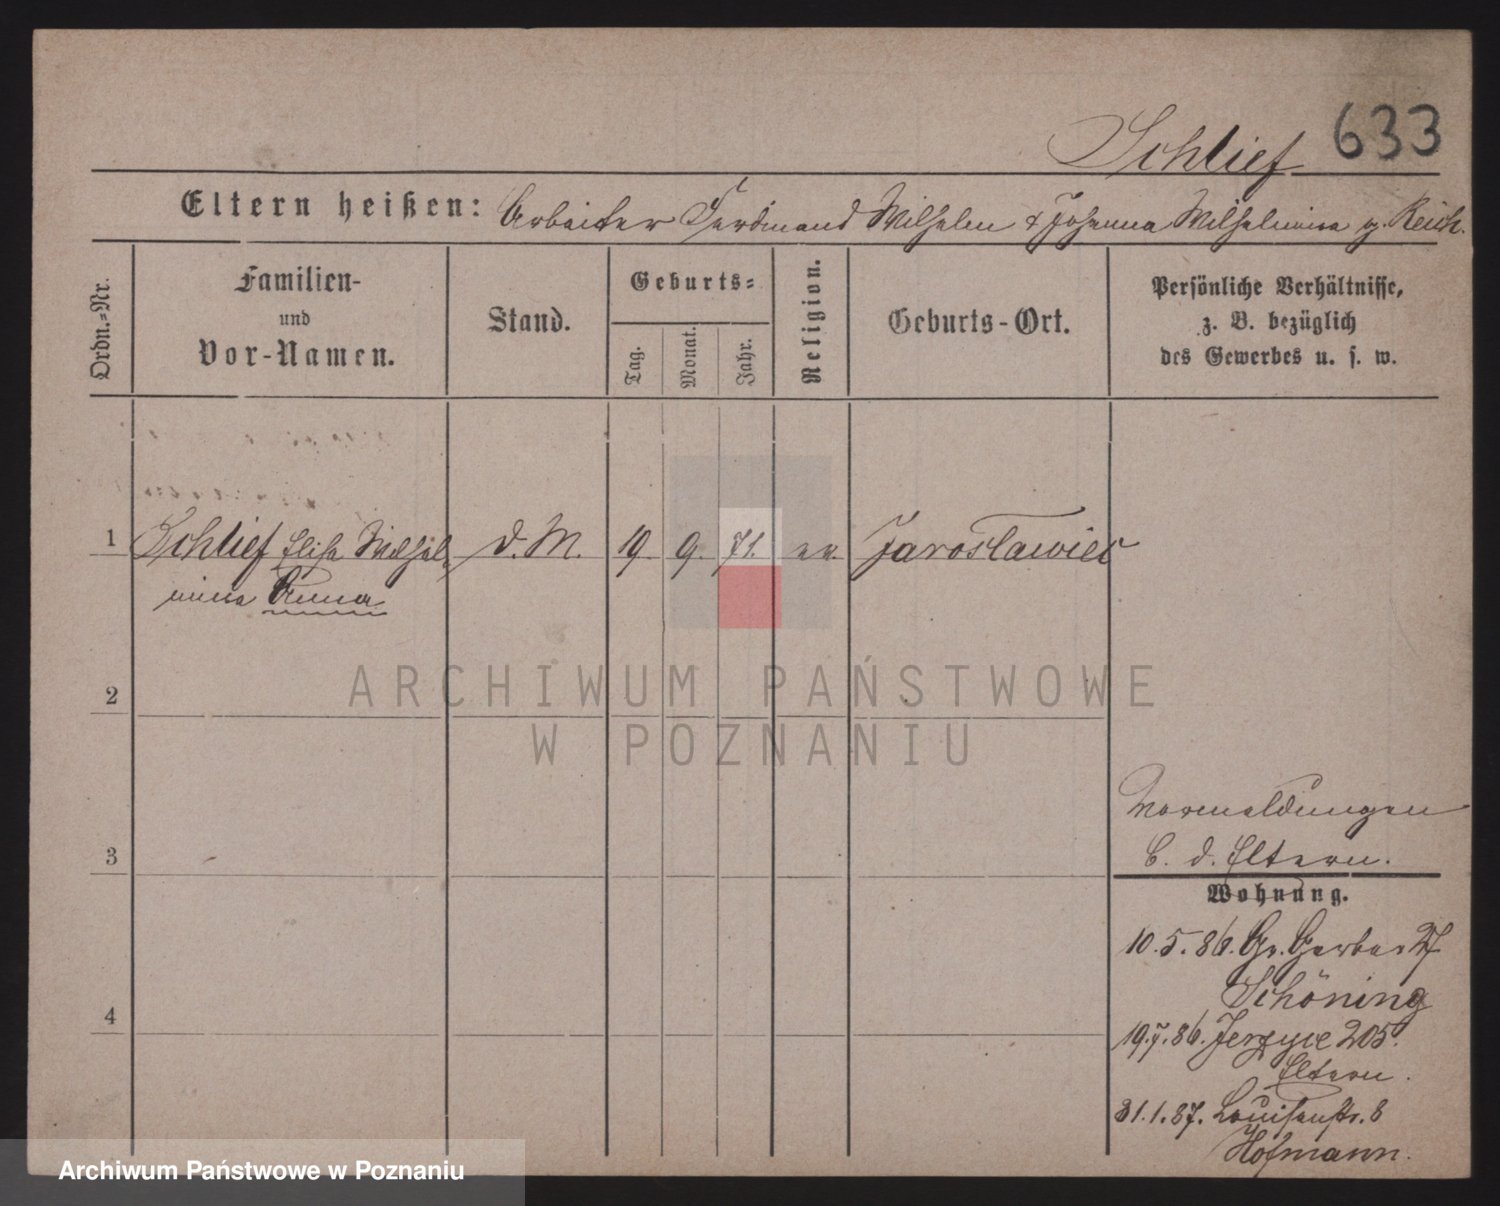 Schlief 633
Eltern heißen: Arbeiter Ferdinand Wilhelm & Johanna Wilhelmine g. Reich.
Ordn.=Nr.
Familien-
und
Vor-Namen.
Stand.
Geburts=
Tag.
Monat.
Jahr.
Religion.
Geburts-Ort.
Persönliche Verhältnisse,
z. B. bezüglich
des Gewerbes u. s. w.
1 Schlief Elise Wilhel d. M. 19. 9. 71. ev. Jaroslawiec
mine Anna
2
ARCHIWUM PAŃSTWOWE
W POZNANIU
Vormeldungen
3 b. d. Eltern.
Wohnung.
10.5.86. Gr. Gerber
Schöning
4
19.7.86. Jerzyce 205.
Eltern.
31.1.87. Louisenstr. 8
Hofmann.
Archiwum Państwowe w Poznaniu